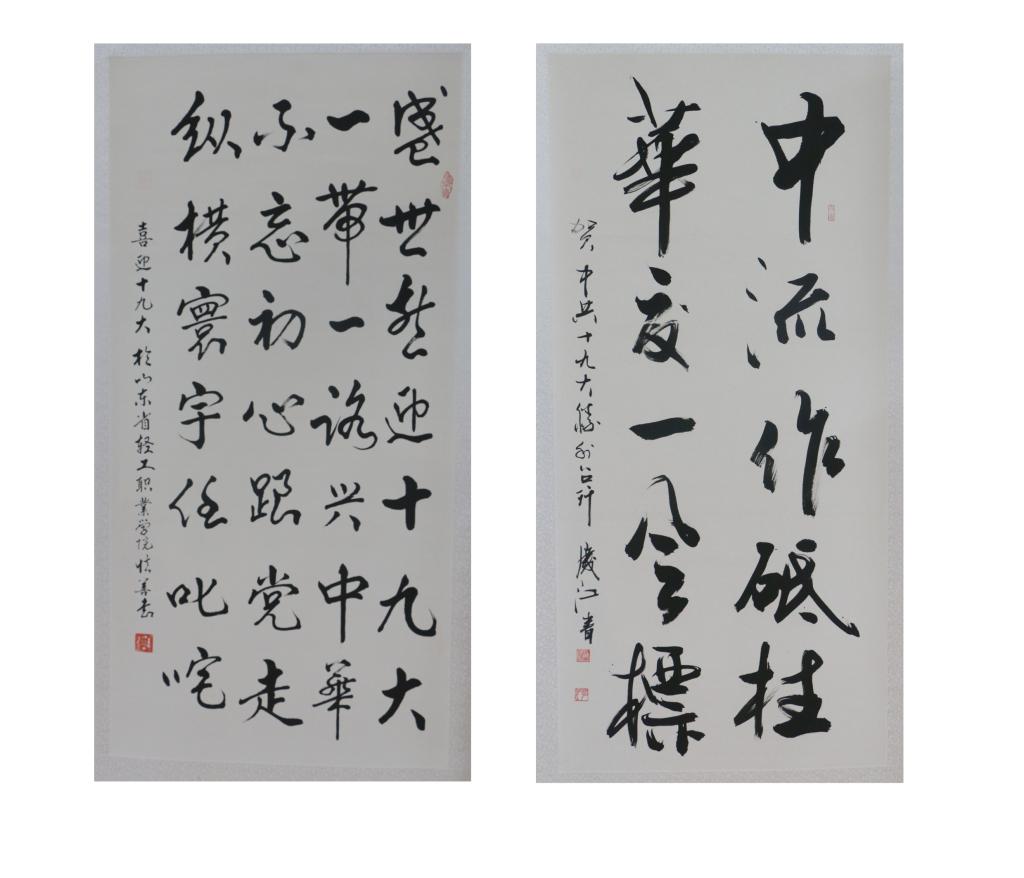 盛世熱迎十九大
一帶一路兴中華
不忘初心跟党走
纵横寰宇任叱咤
喜迎十九大 於山东省轻工职業学院
中流作砥柱
華夏一风標
贺中共十九大勝利召开 慶江書